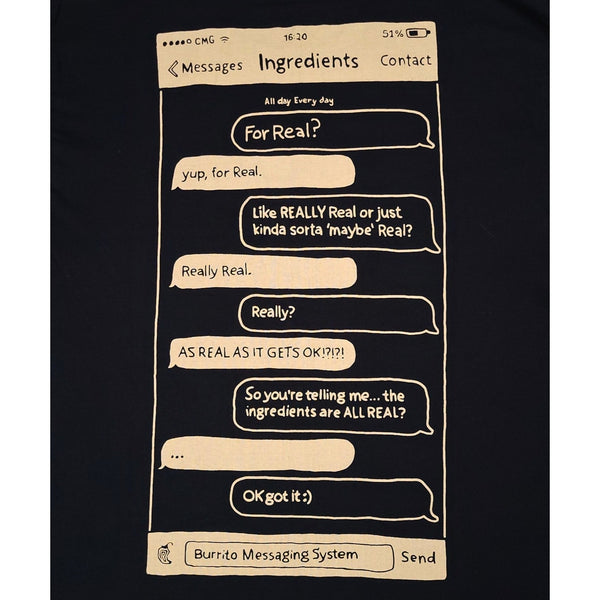 CMG 16:20 51%
Messages Ingredients Contact
All day Every day
For Real?
yup, for Real.
Like REALLY Real or just
kinda sorta 'maybe' Real?
Really Real.
Really?
AS REAL AS IT GETS OK!?!?!
So you're telling me... the
ingredients are ALL REAL?
...
OK got it :)
Burrito Messaging System Send